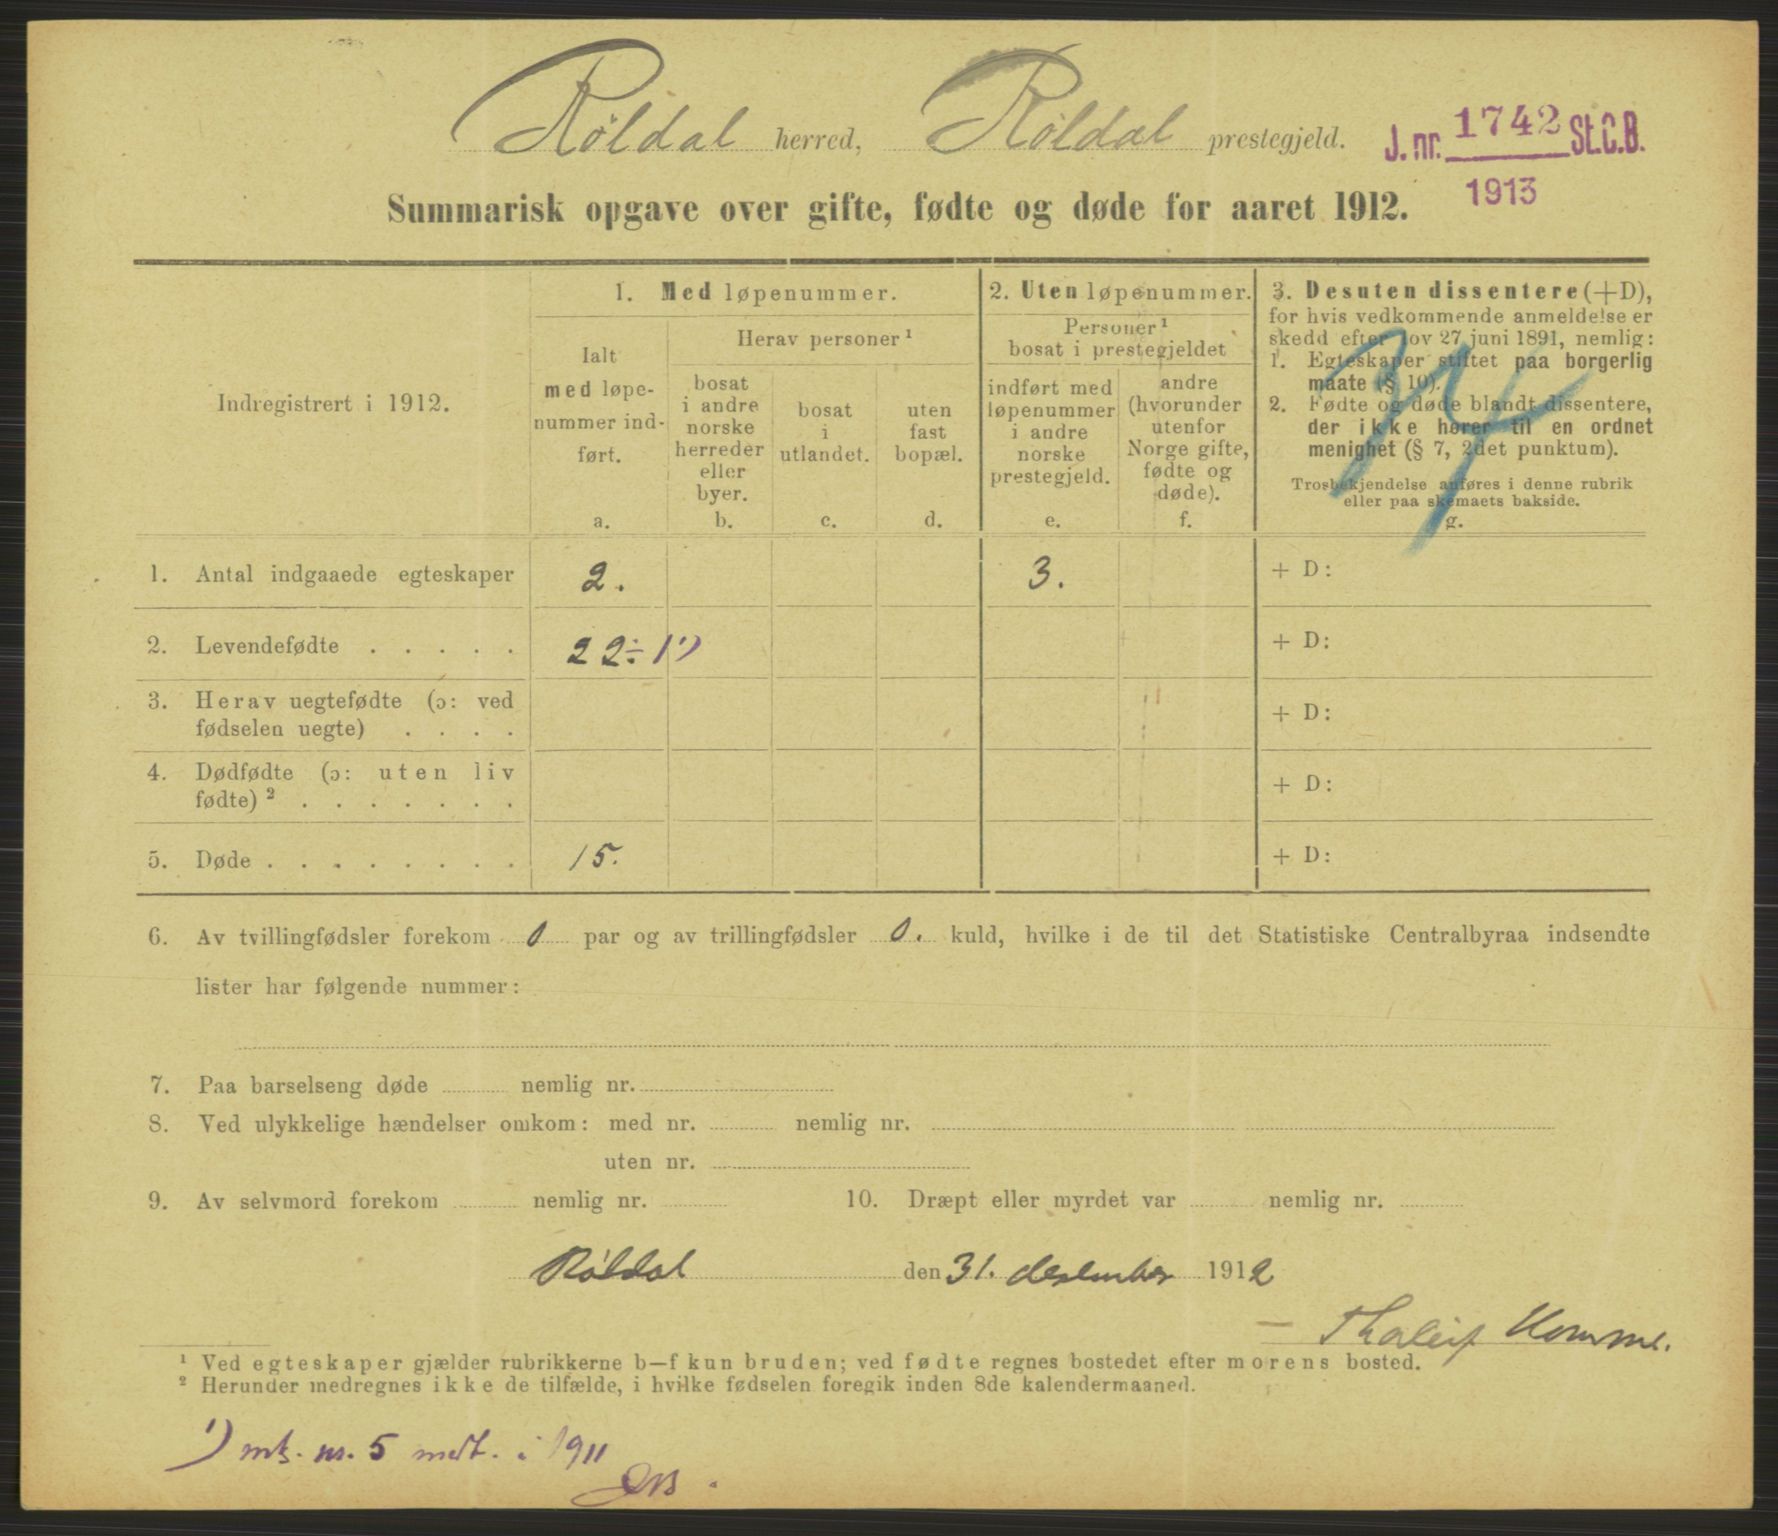 Røldal herred, Røldal prestegjeld. J. nr. 1742 St.C.B.
1913
Summarisk opgave over gifte, fødte og døde for aaret 1912.
Indregistrert i 1912.
1. Med løpenummer.
Ialt
med løpe-
nummer ind-
ført.
a.
Herav personer ¹
bosat
i andre
norske
herreder
eller
byer.
b.
bosat
i
utlandet.
c.
uten
fast
bopæl.
d.
2. Uten løpenummer.
Personer ¹
bosat i prestegjeldet
indført med
løpenummer
i andre
norske
prestegjeld.
e.
andre
(hvorunder
utenfor
Norge gifte,
fødte og
døde).
f.
3. Desuten dissentere (+D),
for hvis vedkommende anmeldelse er
skedd efter lov 27 juni 1891, nemlig:
1. Egteskaper stiftet paa borgerlig
maate (§ 10).
2. Fødte og døde blandt dissentere,
der ikke hører til en ordnet
menighet (§ 7, 2det punktum).
Trosbekjendelse anføres i denne rubrik
eller paa skemaets bakside.
g.
1. Antal indgaaede egteskaper 2. 3. + D:
2. Levendefødte . . . . . 22÷1¹) + D:
3. Herav uegtefødte (ɔ: ved
fødselen uegte) . . . . + D:
4. Dødfødte (ɔ: uten liv
fødte) ² . . . . . . . + D:
5. Døde . . . . . . . . 15. + D:
6. Av tvillingfødsler forekom 0 par og av trillingfødsler 0. kuld, hvilke i de til det Statistiske Centralbyraa indsendte
lister har følgende nummer:
7. Paa barselseng døde nemlig nr.
8. Ved ulykkelige hændelser omkom: med nr. nemlig nr.
uten nr.
9. Av selvmord forekom nemlig nr. 10. Dræpt eller myrdet var nemlig nr.
Røldal den 31. desember 1912
Thorleif Homme.
¹ Ved egteskaper gjælder rubrikkerne b—f kun bruden; ved fødte regnes bostedet efter morens bosted.
² Herunder medregnes ikke de tilfælde, i hvilke fødselen foregik inden 8de kalendermaaned.
¹) mk. nr. 5 medt. i 1911